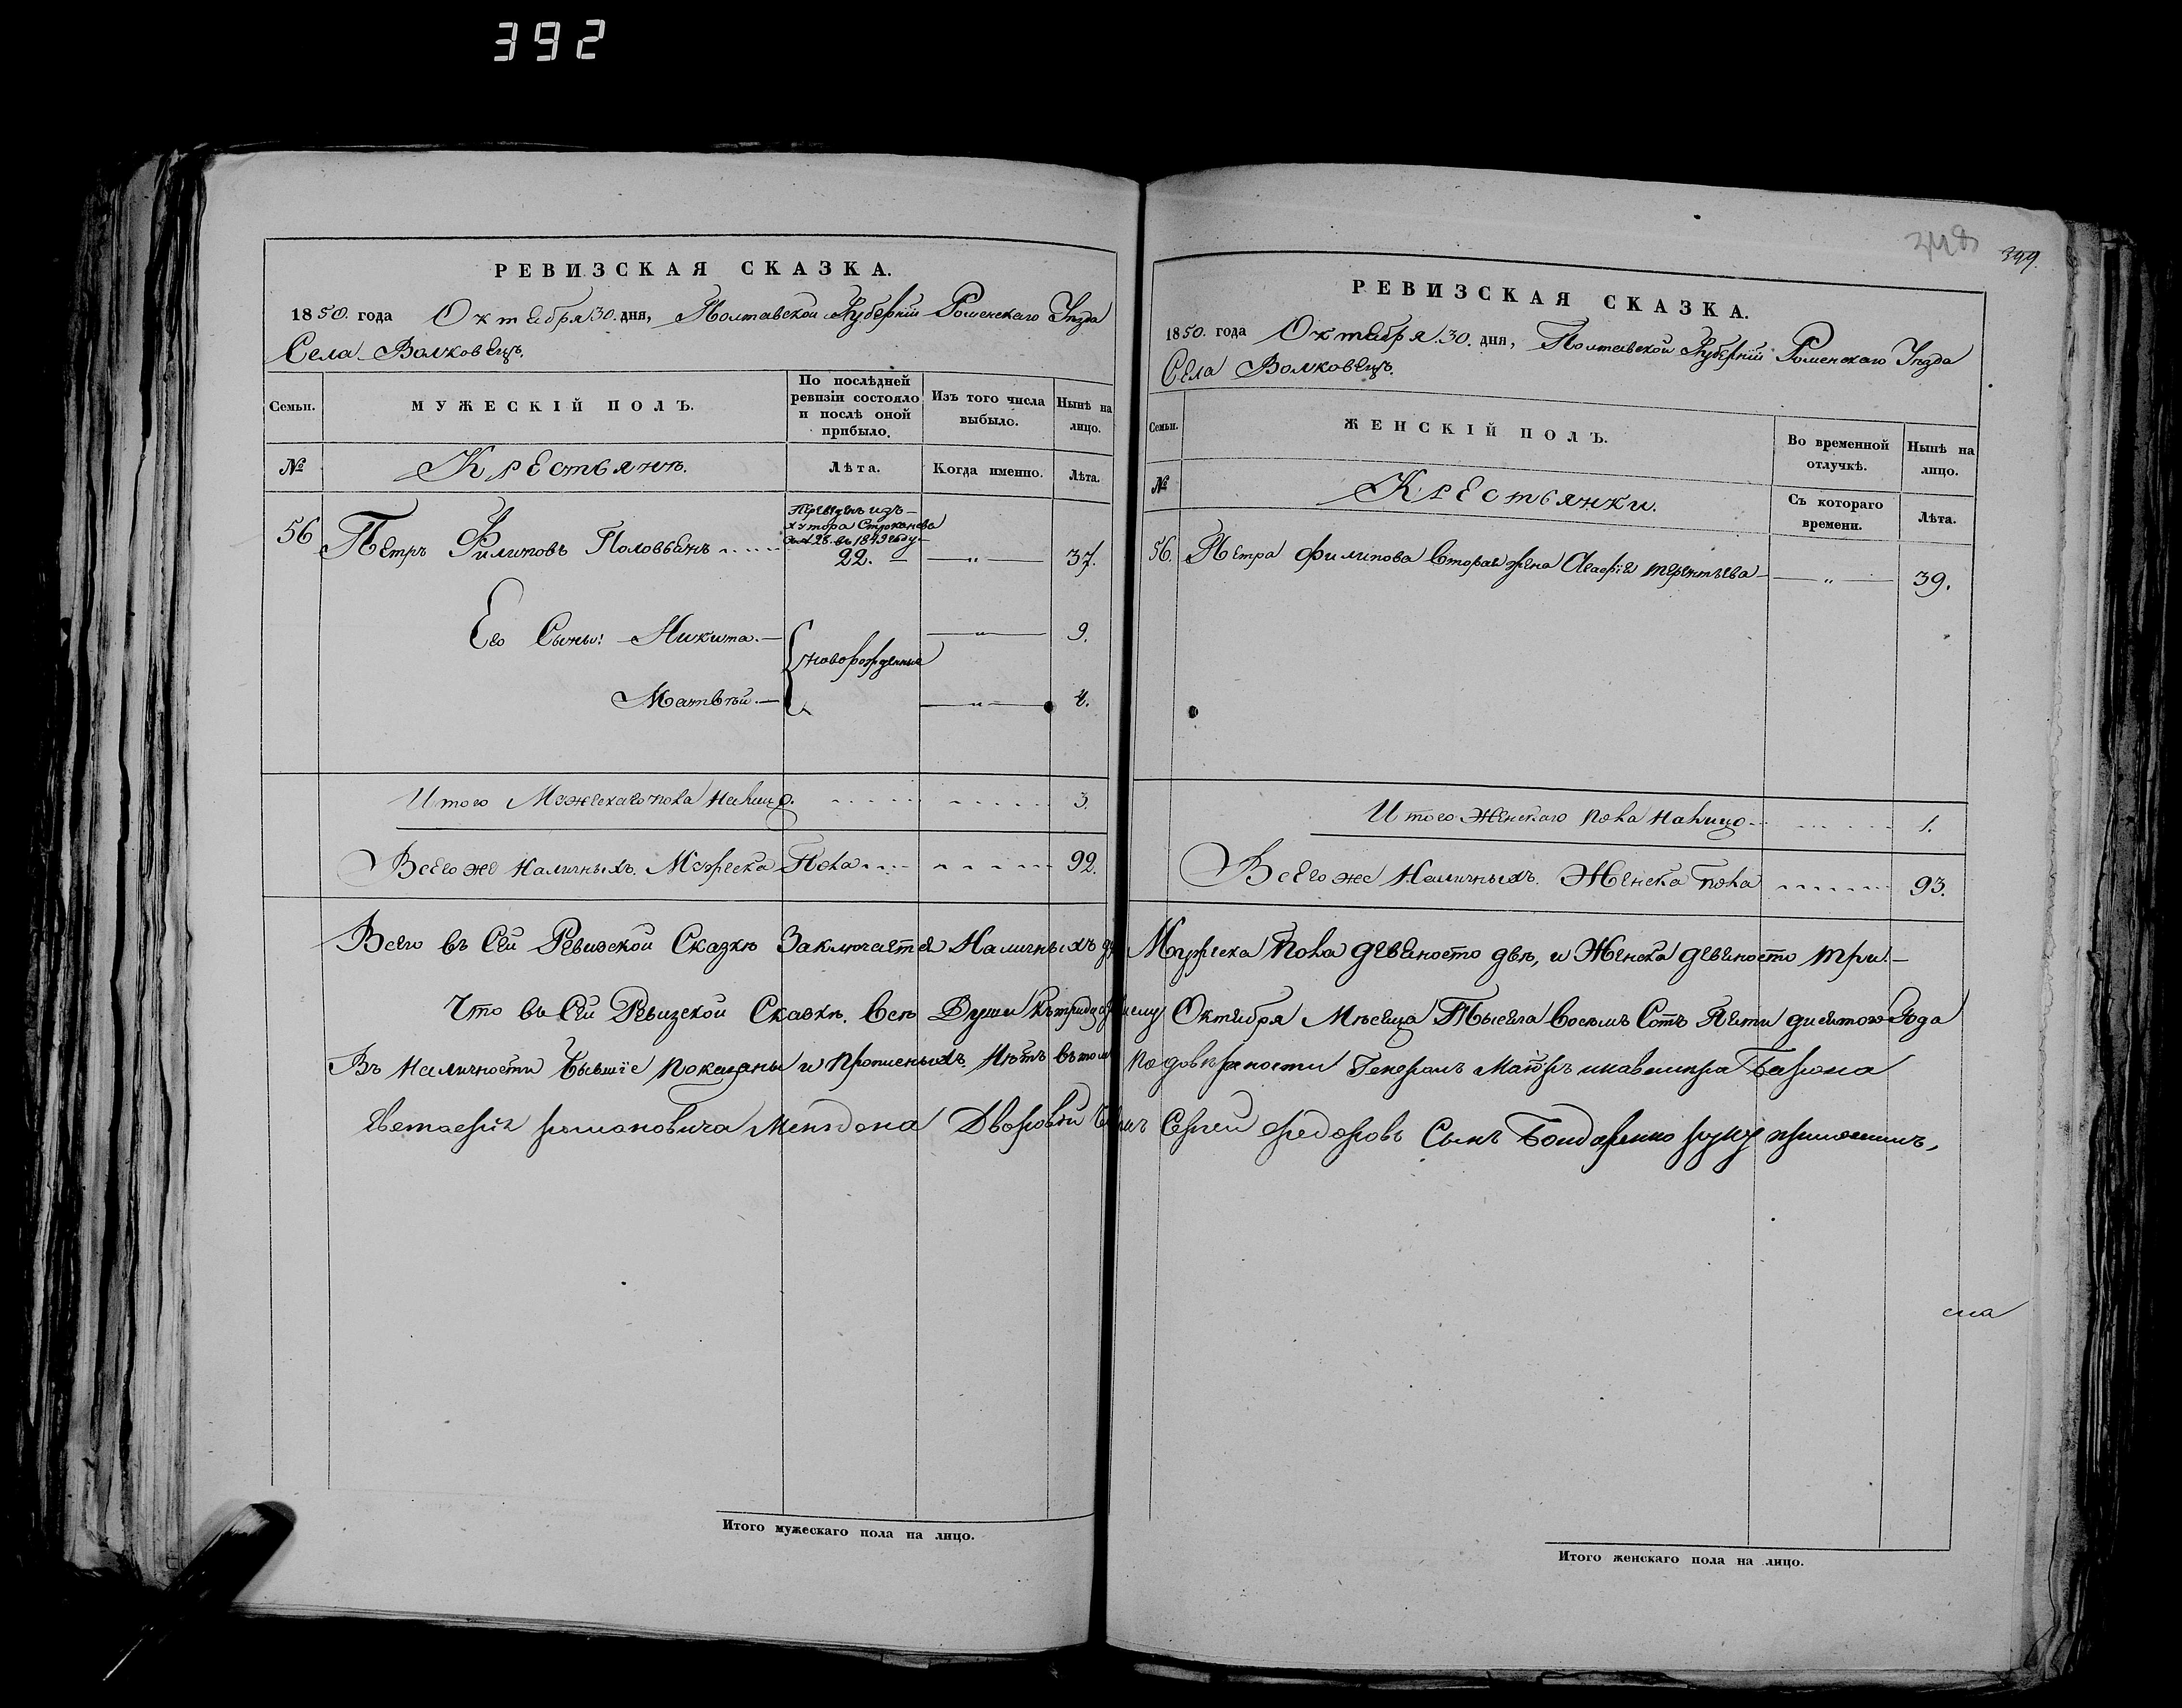 392
РЕВИЗСКАЯ СКАЗКА.
1850. года Октября 30. дня, Полтавской Губерніи Роменскаго Уѣзда
Села Волковецъ.
Семьи.
МУЖЕСКІЙ ПОЛЪ.
По послѣдней
ревизіи состояло
и послѣ оной
прибыло.
Изъ того числа
выбыло.
Нынѣ на
лицо.
№
Крестьянѣ.
Лѣта.
Когда именно.
Лѣта.
56
Петръ Филиповъ Половьянъ
изъ
хутора
въ 1849 году
22.
37.
Его Сыны: Никита.
новорожденные
9.
Матвѣй.
4.
ИтогоМожескаго пола налицо.
3.
Всего же Наличныхъ. Мужеска Пола
92.
344
РЕВИЗСКАЯ СКАЗКА.
1850. года Октября. 30. дня, Полтавской Губерніи Роменскаго Уѣзда
Села Волковецъ.
Семьи.
ЖЕНСКІЙ ПОЛЪ.
Во временной
отлучкѣ.
Нынѣ на
лицо.
№
Крестьянки.
Съ котораго
времени.
Лѣта.
56. Петра Филипова вторая жена Агафія терентьева
39.
Итого Женскаго пола налицо
1.
Всего же Наличныхъ. Женска пола
93.
Всего въ Сей Ревизской Сказкѣ Заключается Наличныхъ Мужеска пола девяносто двѣ, и Женска девяносто три.
Что въ Сей Ревизской Сказкѣ. Всѣ Души Октября Мѣсяца Тысяча восемь Сотъ Пяти десятого Года
Въ Наличности бывшіе показаны и прописныхъ. Нѣтъ въ том по довѣрености Генералъ Маіоръ икавалера Барона
романовича Менгдена Дворовой Сергей Федоровъ Сынъ Бондаренко руку приложилъ,
Итого мужескаго пола на лицо.
Итого женскаго пола на лицо.